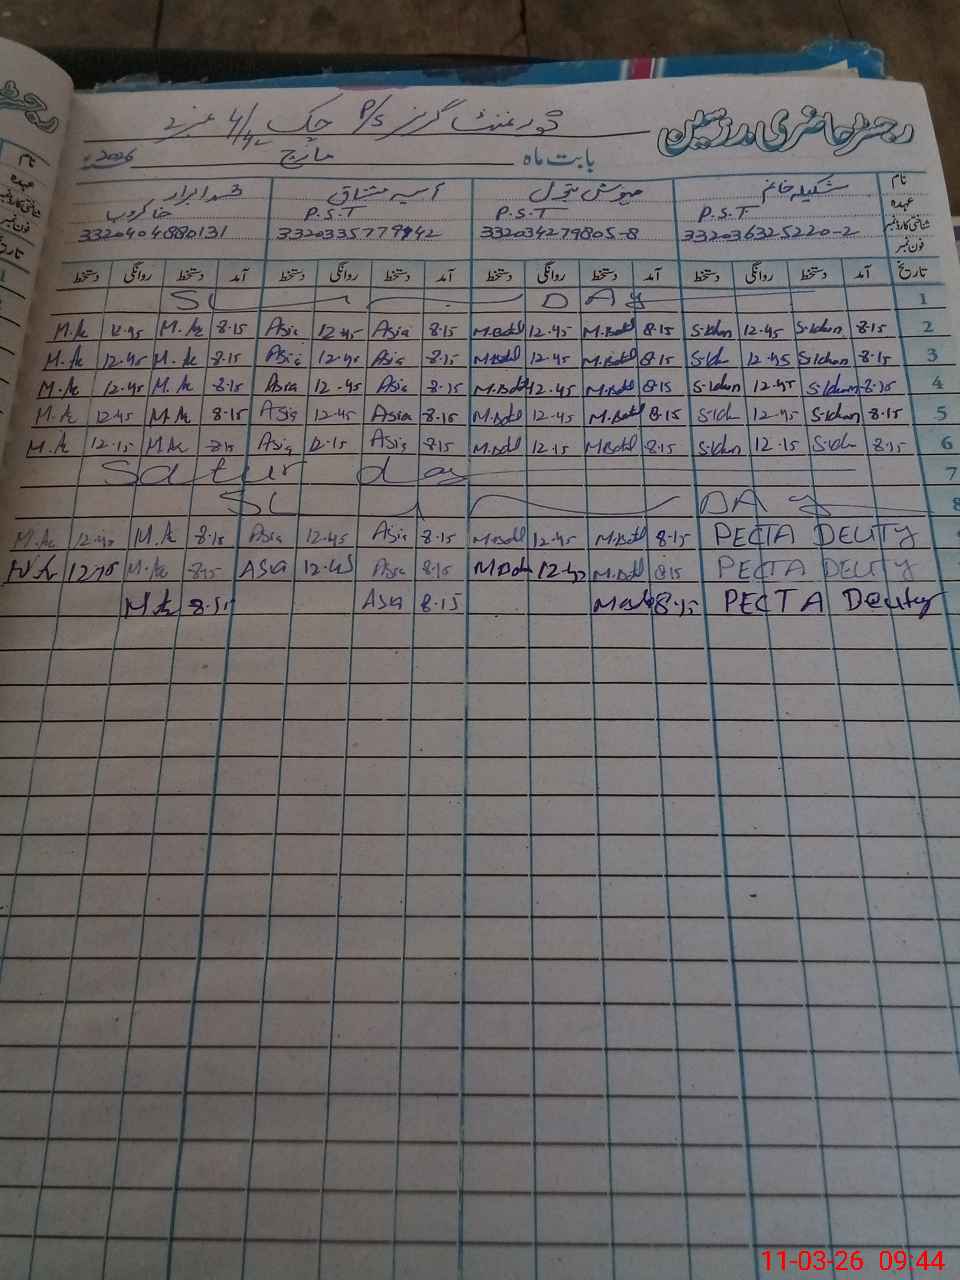 رجسٹر حاضری مدرسین
گورنمنٹ گرلز P/S چک 4/4L
بابت ماہ مارچ 2026ء
نام شکیلہ خانم مہوش بتول آسیہ مشتاق محمد ابرار
عہدہ P.S.T P.S.T P.S.T خاکروب
شناختی کارڈ نمبر 332036325220-2 332034279805-8 3320335779942 3320404880131
فون نمبر
تاریخ آمد دستخط روانگی دستخط آمد دستخط روانگی دستخط آمد دستخط روانگی دستخط آمد دستخط روانگی دستخط
SUNDAY 1
M.Ak 12.45 M.Ak 8.15 Asia 12.45 Asia 8.15 M.Batl 12.45 M.Batl 8.15 S.Khan 12.45 S.Khan 8.15 2
M.Ak 12.45 M.Ak 8.15 Asia 12.45 Asia 8.15 M.Batl 12.45 M.Batl 8.15 S.Kh 12.45 S.Khan 8.15 3
M.Ak 12.45 M.Ak 8.15 Asia 12.45 Asia 8.15 M.Batl 12.45 M.Batl 8.15 S.Khan 12.45 S.Khan 8.15 4
M.Ak 12.45 M.Ak 8.15 Asia 12.45 Asia 8.15 M.Batl 12.45 M.Batl 8.15 S.Kh 12.45 S.Khan 8.15 5
M.Ak 12.15 M.Ak 8.15 Asia 12.15 Asia 8.15 M.Batl 12.15 M.Batl 8.15 S.Khan 12.15 S.Kh 8.15 6
Satur day 7
SUNDAY 8
M.Ak 12.45 M.Ak 8.15 Asia 12.45 Asia 8.15 M.Batl 12.45 M.Batl 8.15 PECTA DEUTY
12.45 M.Ak 8.15 ASIA 12.45 Asia 8.15 M.Bat 12.45 M.Batl 8.15 PECTA DEUTY
M.Ak 8.15 ASIA 8.15 8.15 PECTA Deuty
11-03-26 09:44